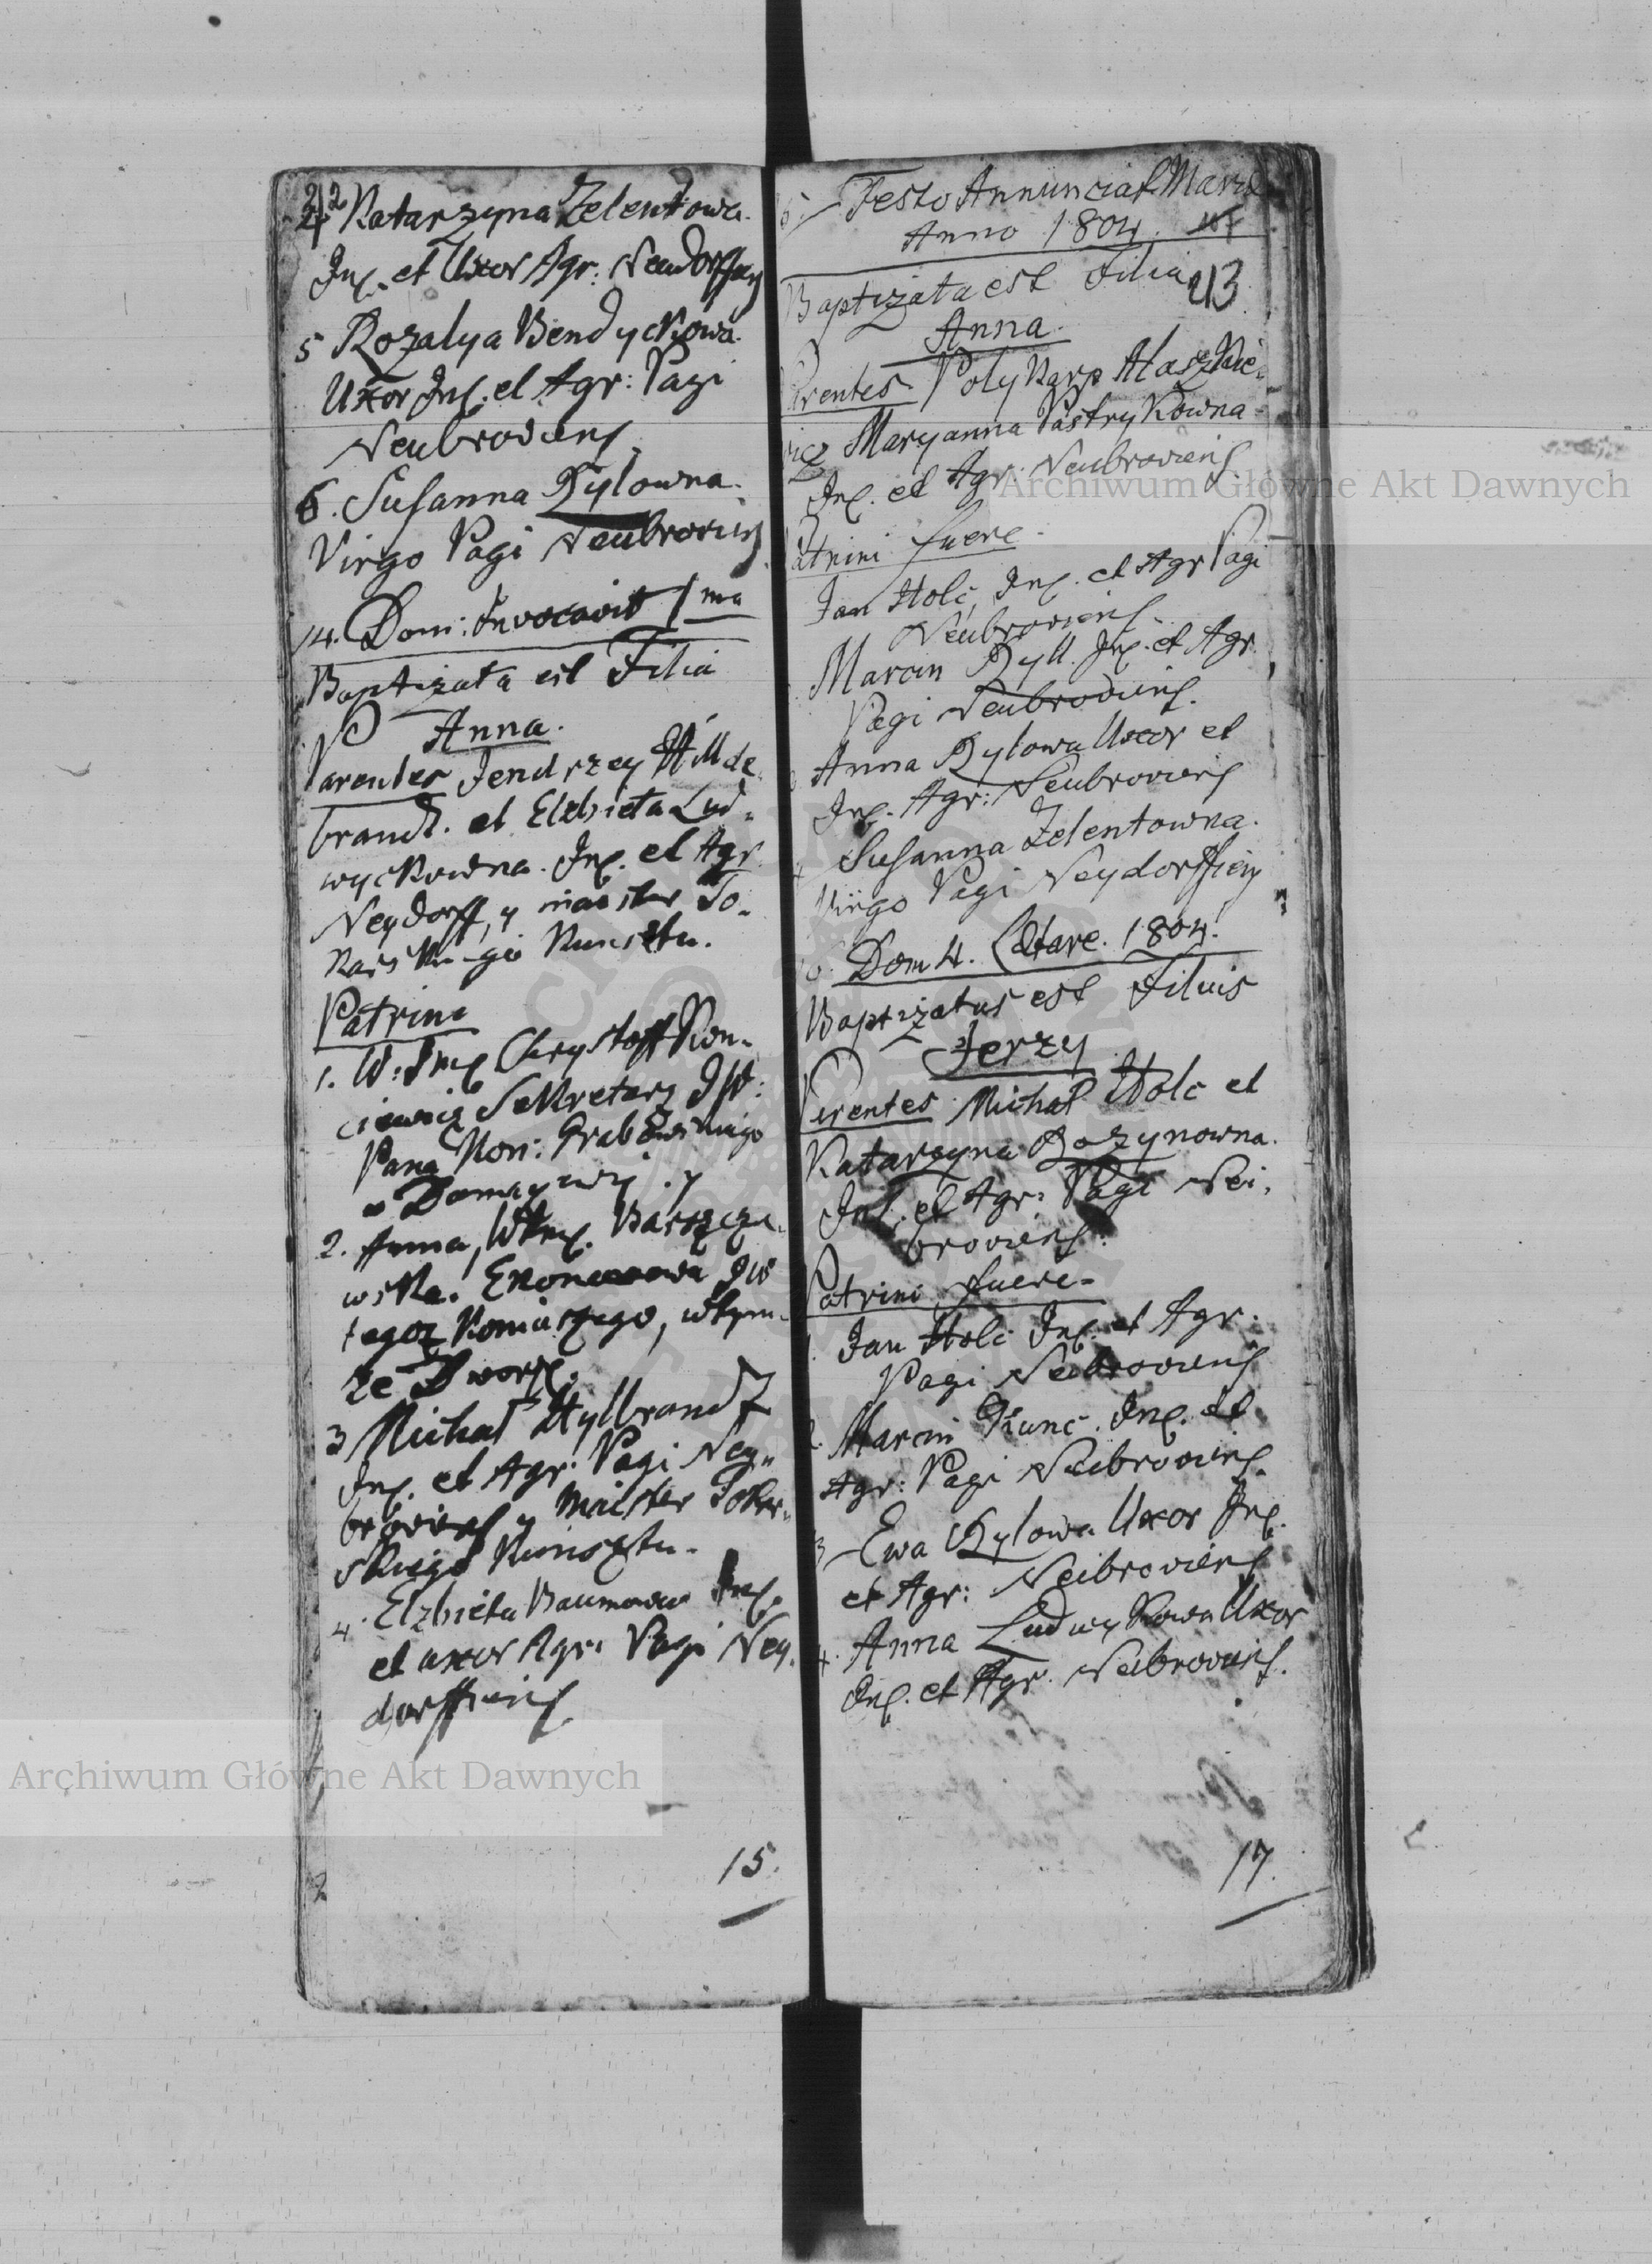 42
4 Katarzyna Zelentowa.
Inq. et Uxor Agr: Neudorffiens
5 Rozalya Bendyckowa.
Uxor Inq. et Agr: Pagi
Neubroviens
6. Susanna Rylowna.
Virgo Pagi Neubroviens
14. Dom: Invocavit 1ma
Baptizata est Filia
Anna.
Parentes Jendrzey Hilde
brandt. et Elzbieta Lud-
wyckowna. Inq. et Agr.
Neydorff, y maister To-
karskiego Kunsztu.
Patrini
1. W: Imq Chrystoff Kon-
ciewicz Sekretarz JW:
Pana Kon: Grabowskiego
w Domaczewi. y
2. Anna, WImq. Barszcze-
wska. Ekonomowa JW
tegoz Koniuszego, w tym-
ze Dworze.
3 Michał Hylbrandt
Inq. et Agr: Pagi Ney-
broviens y Maister Tokar-
skiego Kunsztu.
4. Elzbieta Baumowa Inq.
et uxor Agr: Pagi Ney-
dorffiens
15.
Festo Annunciat Mariæ
Anno 1804.
43
Baptizata est Filia
Anna.
Parentes Polykarp Staszkie-
wicz Maryanna Pastrykowna
Inq. et Agr: Neubroviens.
Patrini fuere.
Jan Holc, Inq. et Agr Pagi
Neubroviens.
Marcin Ryll. Inq. et Agr.
Pagi Neubroviens.
Anna Rylowa Uxor et
Inq. Agr: Neubroviens
Susanna Zelentowna.
Virgo Pagi Neydorffiens
Dom 4. Lætare. 1804.
Baptizatus est Filius
Jerzy
Parentes Michał Holc et
Katarzyna Bozynowna.
Inq. et Agr: Pagi Nei-
broviens.
Patrini fuere-
1. Jan Holc Inq. et Agr.
Pagi Neibroviens
2. Marcin Kunc. Inq. et
Agr: Pagi Neibroviens.
3 Ewa Rylowa Uxor Inq.
et Agr: Neibroviens
4. Anna Ludwykowa Uxor
Inq. et Agr. Neibroviens.
17.
Archiwum Główne Akt Dawnych
Archiwum Główne Akt Dawnych